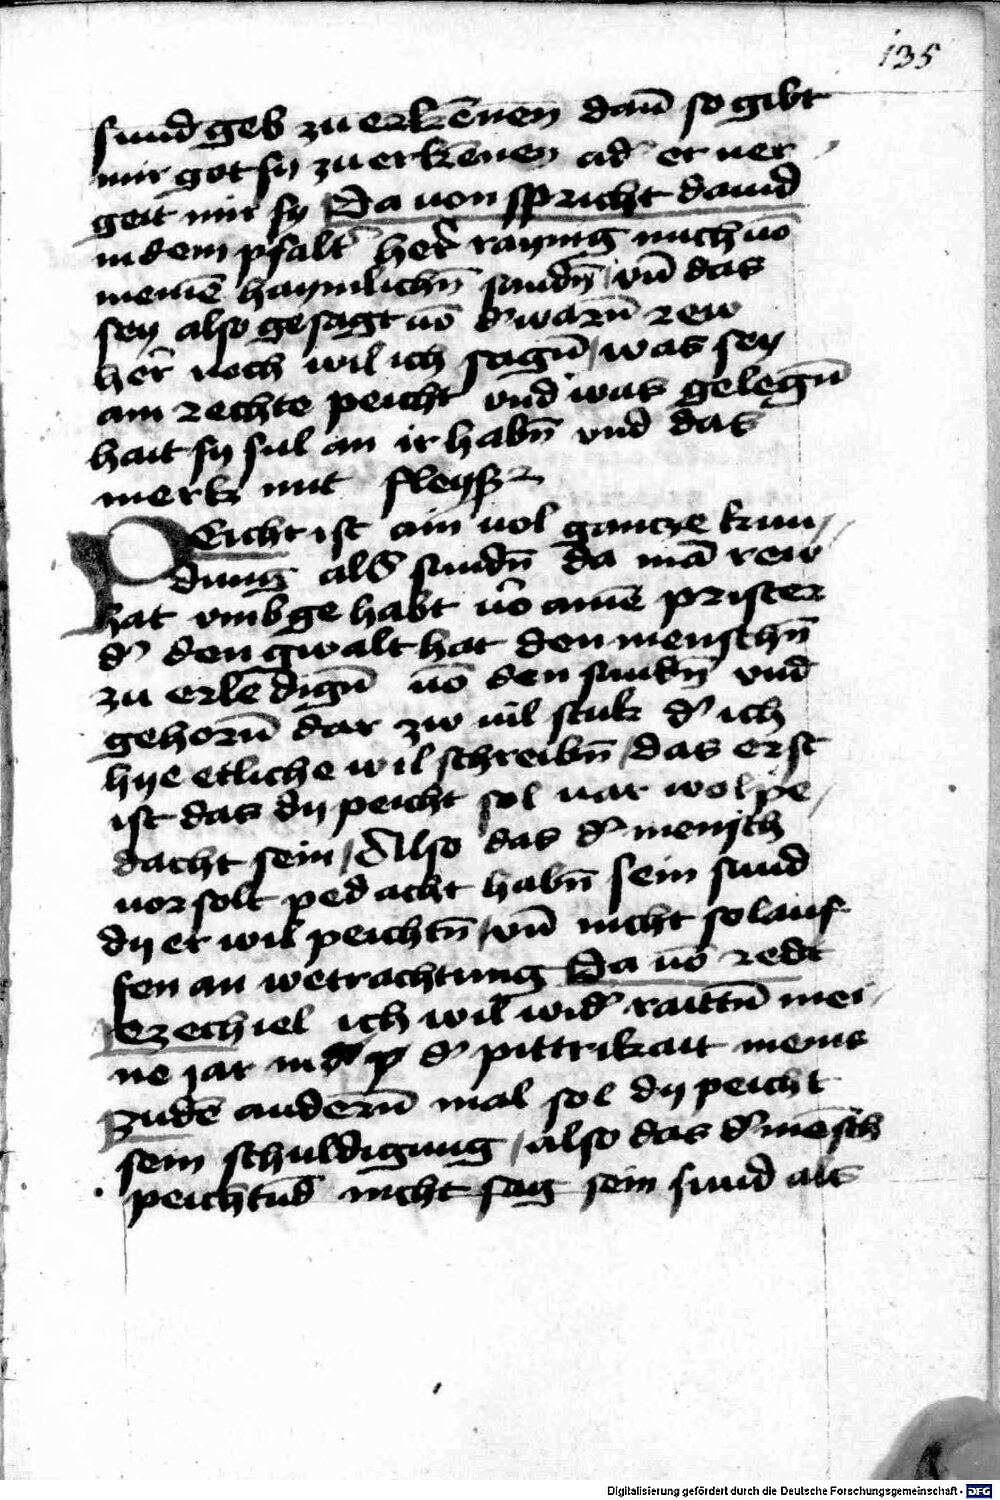 135
sund geb zu erkēnen dañ so gibt
mir got sy zu erkēnen ad' er ver
geit mir sy Da von spricht dauid
in dem pfalt' her̄ raynig mich uō
meinē haymlichn̄ sundn̄ / vn̄ das
sey also gesagt uō d' warn̄ rew
her̄ noch wil ich sagn̄ / was sey
ain rechte peicht vnd was gelegn̄
hait sy sul an ir habn̄ vnd das
merk mit fleyss
PEicht ist ain vol gantze kun /
dung all' sundn̄ da mā rew
hat vmb gehabt vō ainē prister
d' den gwalt hat den menschn̄
zu erledign̄ uō den sundn̄ vnd
gehorn̄ dar zw vil stuk d' ich
hye etliche wil schreibn̄ / das erst
ist das dy peicht sol var wol pe /
dacht sein / Also das d' mensch
vor solt pedacht habn̄ sein sund
dy er wil peichtn̄ / vn̄ nicht so lauf
fen an wetrachtung Da uō redt
Ezechiel ich wil wid' raittn̄ mei /
ne jar in d' pittrikait meins
Zu dē andern̄ mal sol dy peicht
sein schuldigung / also das d' mēsch
peichtūd nicht sag sein sund als
Digitalisierung gefördert durch die Deutsche Forschungsgemeinschaft - DFG